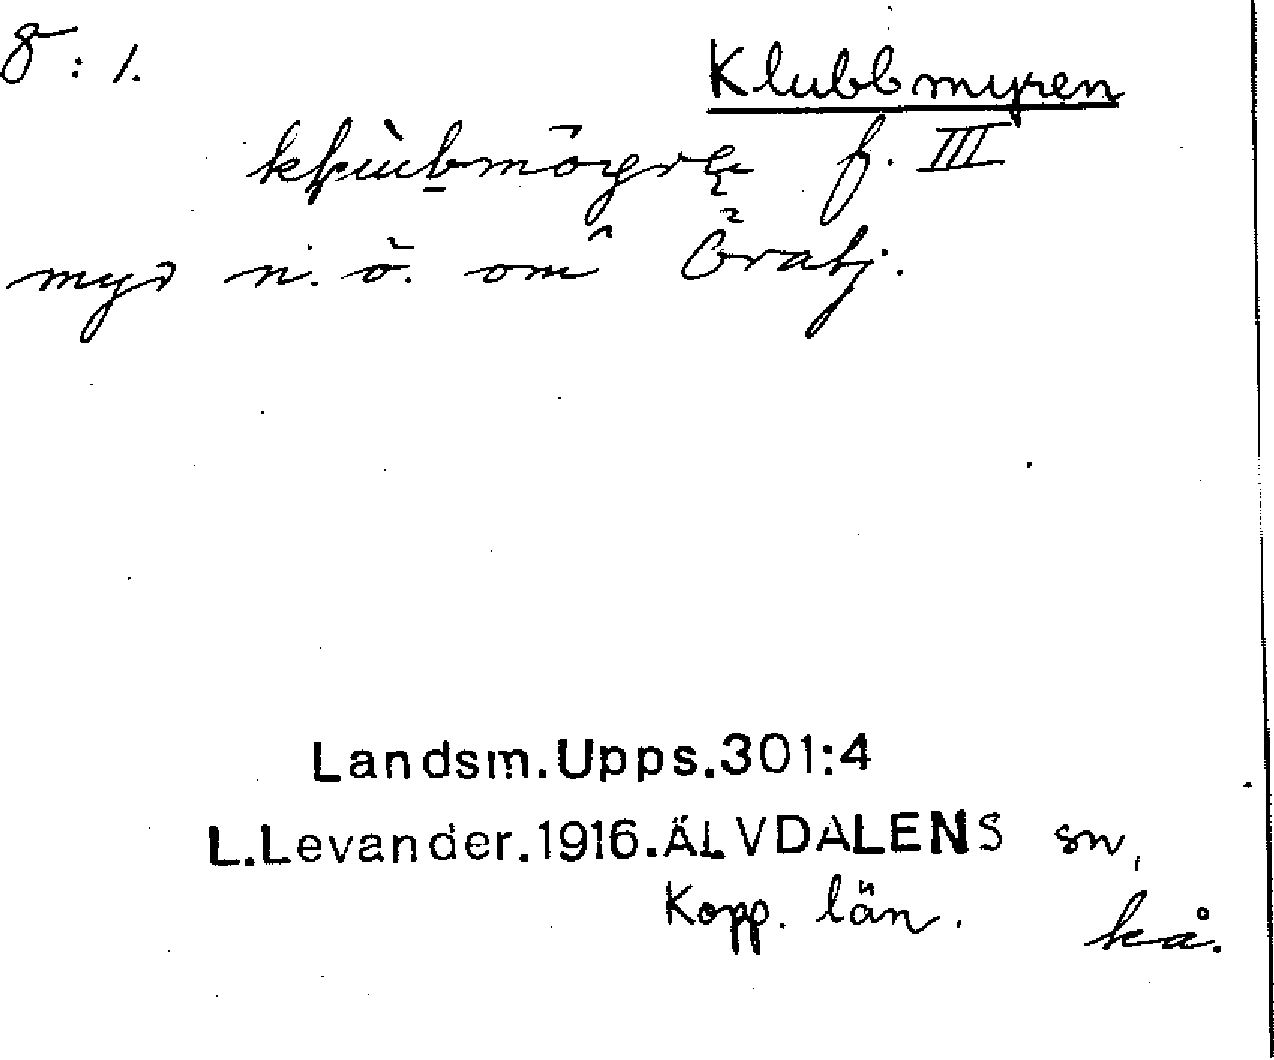 8:1.
Klubbmyren
f. III
myr n. ö. om
Landsm.Upps.301:4
L.Levander.1916.ÄLVDALENS sn,
Kopp. län.
kå.